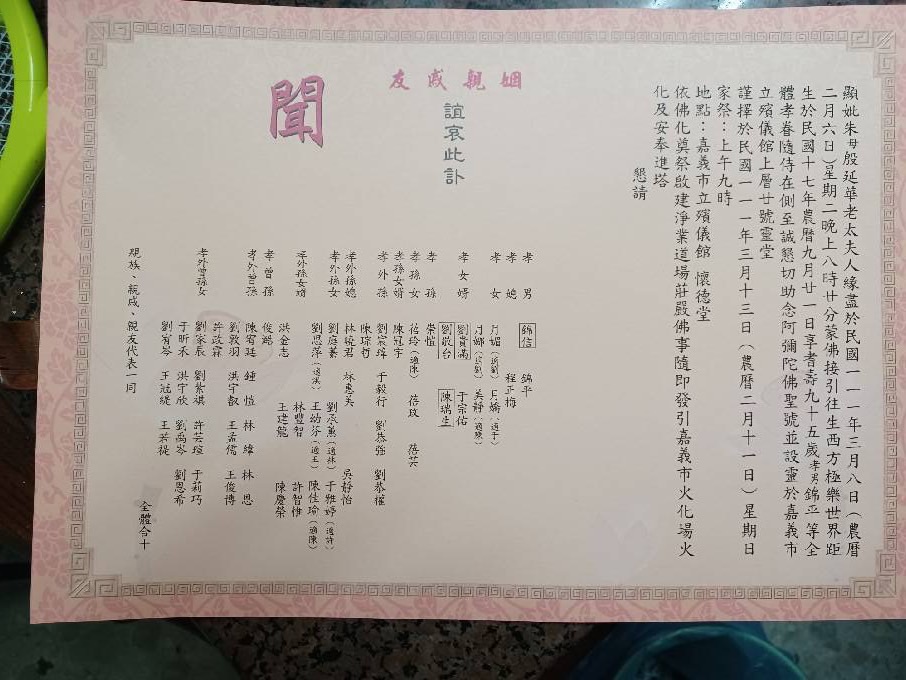 顯妣朱母殷延華老太夫人緣盡於民國一一一年三月八日（農曆
二月六日）星期二晚上八時廿分蒙佛接引往生西方極樂世界距
生於民國十七年農曆九月廿一日享耆壽九十五歲孝男錦平等全
體孝眷隨侍在側至誠懇切助念阿彌陀佛聖號並設靈於嘉義市
立殯儀館上層廿號靈堂
謹擇於民國一一一年三月十三日（農曆二月十一日）星期日
家祭：上午九時
地點：嘉義市立殯儀館 懷德堂
依佛化奠祭啟建淨業道場莊嚴佛事隨即發引嘉義市火化場火
化及安奉進塔
懇請
姻親戚友
誼哀此訃
聞
孝男 錦信 錦平
孝媳 程正梅
孝女 月媚（適劉） 月嬌（適于）
月娜（適劉） 美靜（適陳）
孝女婿 劉貴滿 于宗佑
劉敬台 陳瑞生
孝孫 崇愷
孝孫女 蓓玲（適陳） 蓓玟 蓓芸
孝孫女婿 陳冠宇
孝外孫 劉宸瑋 于毅行 劉恭強 劉恭權
陳琮哲
孝外孫媳 林曉君 惠美 吳靜怡
孝外孫女 劉庭蓁 劉承薰（適林） 于雅婷（適許）
劉思萍（適洪） 王幼芬（適王） 陳佳瑜（適陳）
孝外孫女婿 林豐智 許智惟
洪金志 王建龍 陳慶榮
孝曾孫 俊皓
孝外曾孫 陳宥廷 鍾愷 林緯 林恩
劉敦羽 洪宇叡 王孟儒 王俊博
許政霖
孝外曾孫女 劉家辰 劉紫棋 許芸瑄 于莉巧
于昕禾 洪宇欣 劉禹岑 劉恩希
劉宥岑 王冠緹 王若禔
親族、親戚、親友代表一同
全體合十